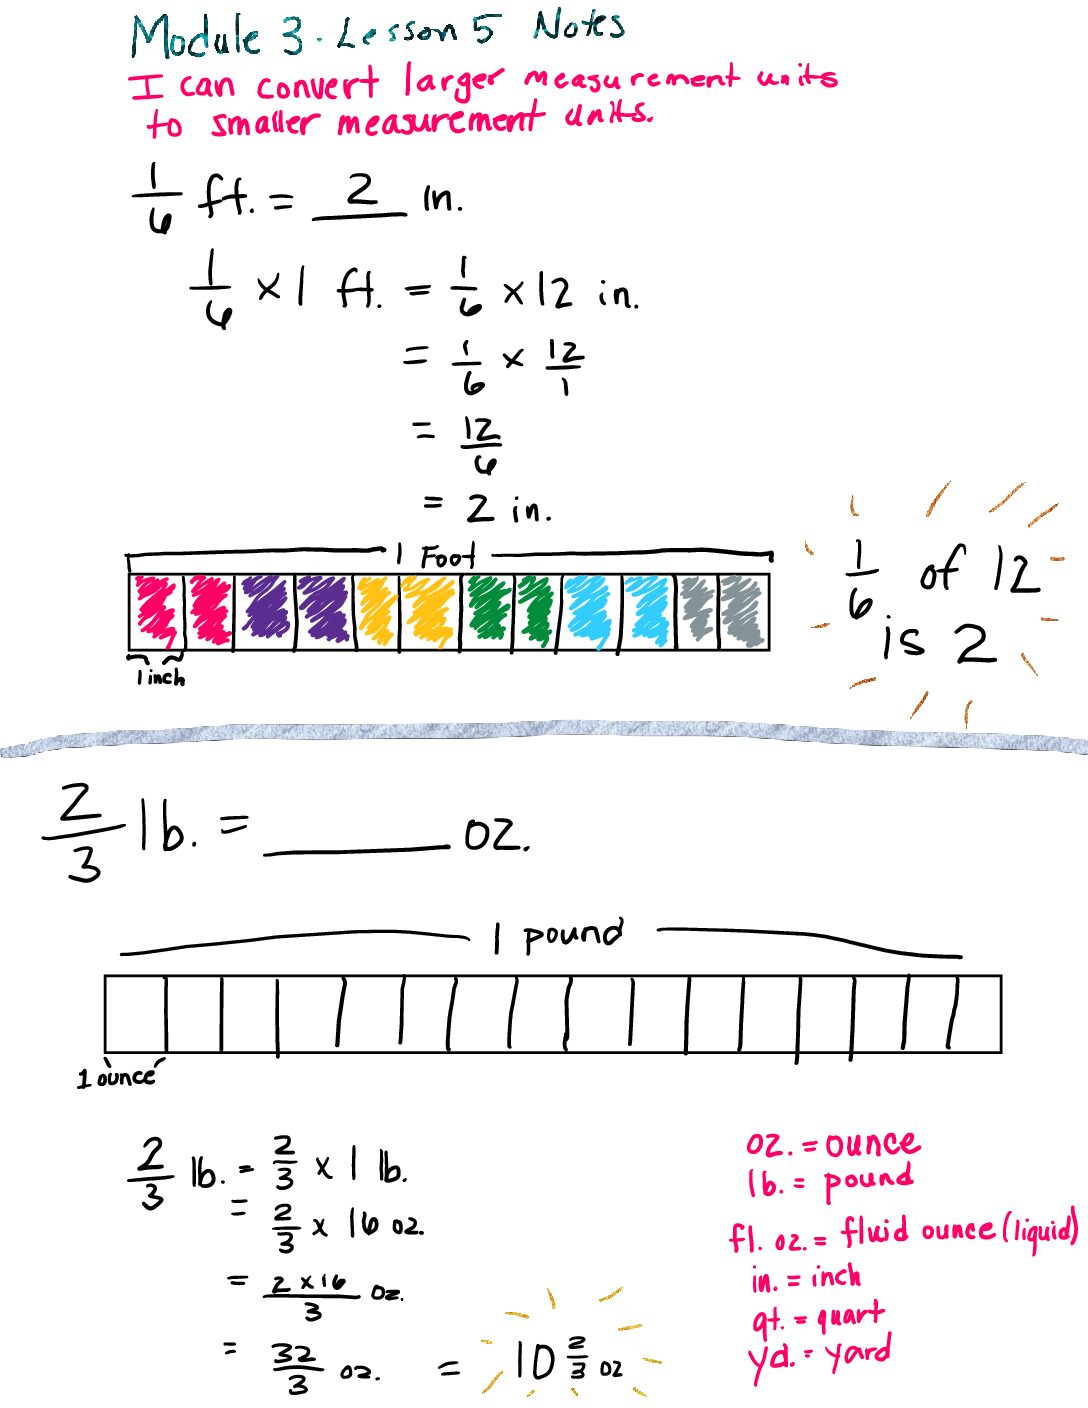 Module 3 - Lesson 5 Notes
I can convert larger measurement units
to smaller measurement units.
1/6 ft. = 2 in.
1/6 × 1 ft. = 1/6 × 12 in.
= 1/6 × 12/1
= 12/6
= 2 in.
1 Foot
1 inch
1/6 of 12
is 2
2/3 lb. = ______ oz.
1 pound
1 ounce
2/3 lb. = 2/3 × 1 lb.
= 2/3 × 16 oz.
= 2 × 16/3 oz.
= 32/3 oz. = 10 2/3 oz
oz. = ounce
lb. = pound
fl. oz. = fluid ounce (liquid)
in. = inch
qt. = quart
yd. = yard